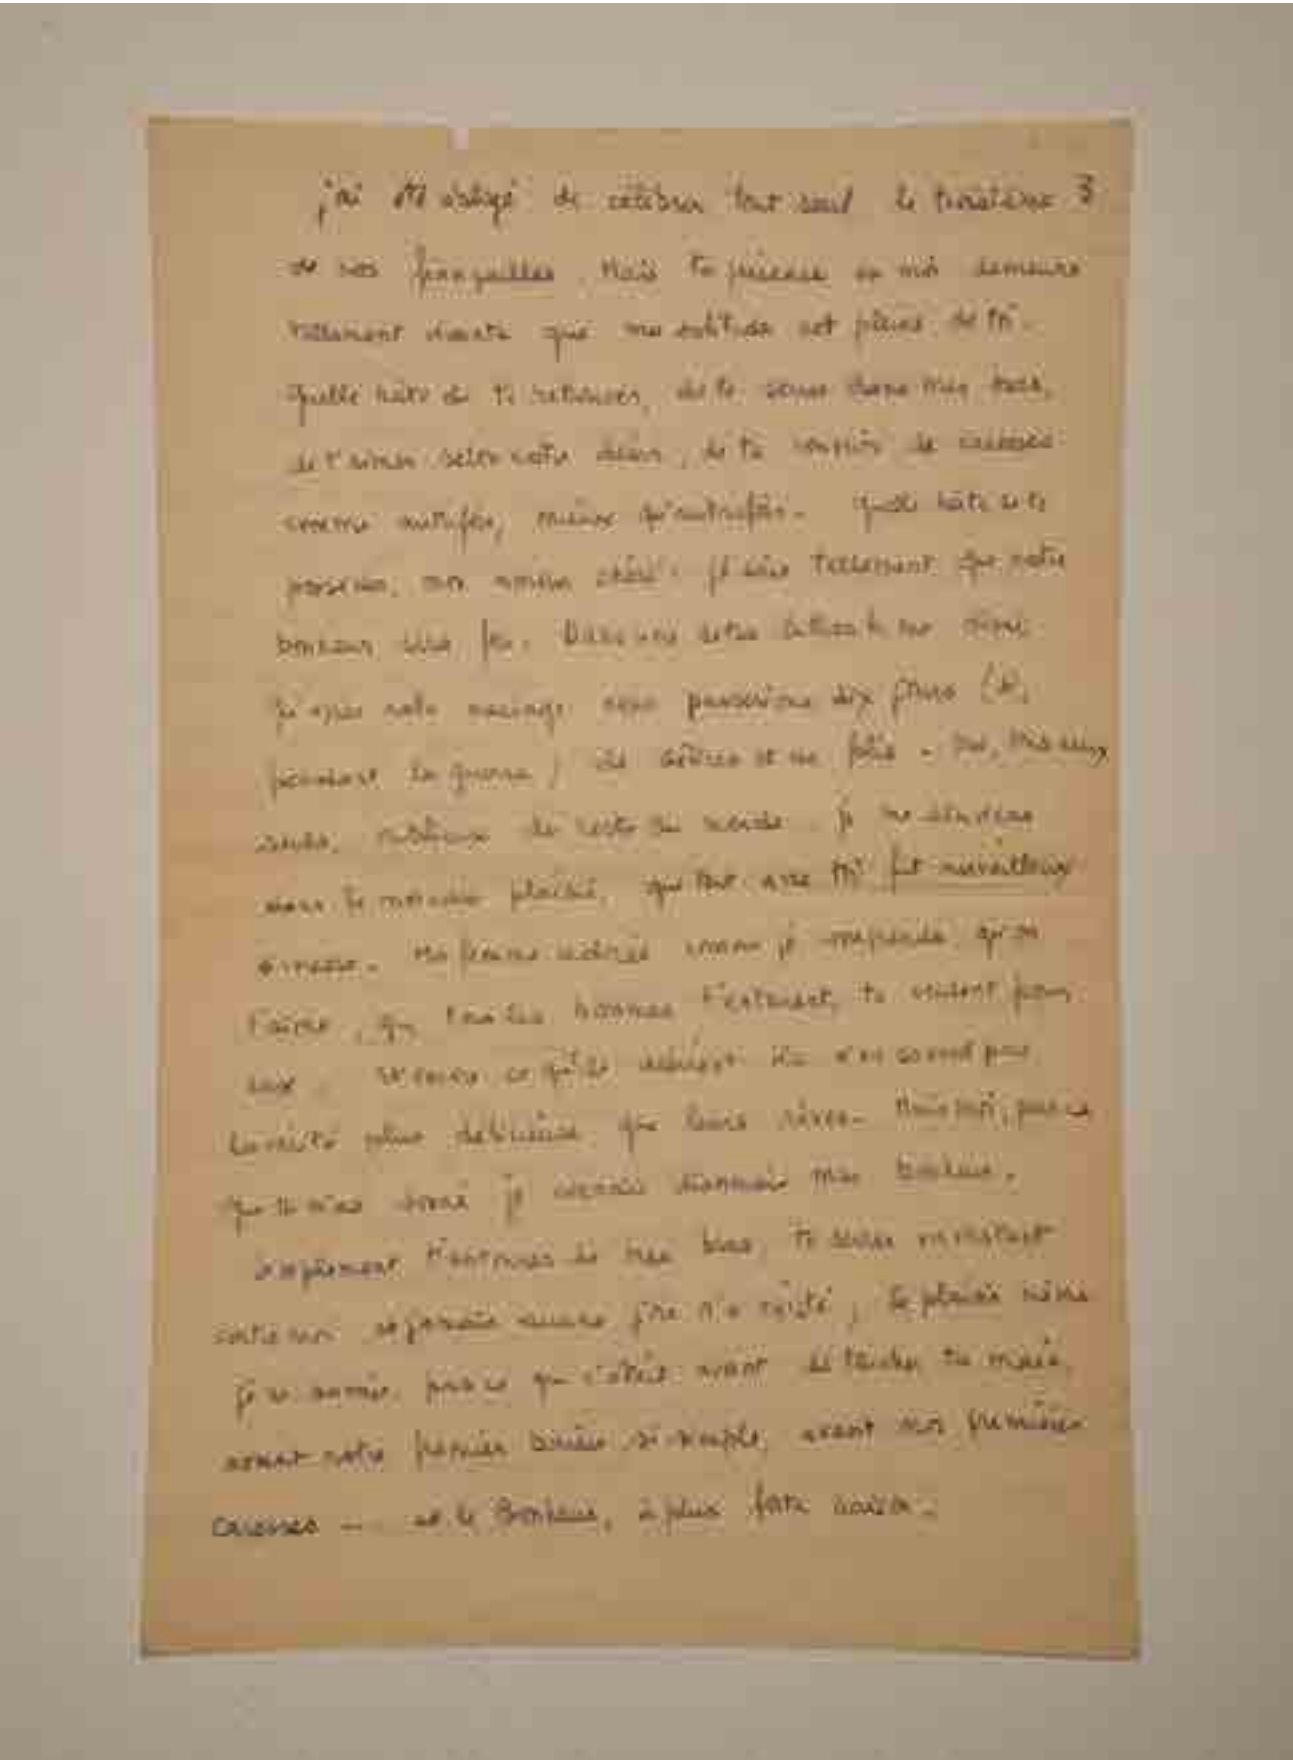 j'ai été obligé de célébrer tout seul le troisième 3
de nos fiançailles. Mais ta présence en moi demeure
tellement vivante que ma solitude est pleine de toi.
Quelle hâte de te retrouver, de te serrer dans mes bras,
de t'aimer selon notre désir, de te couvrir de caresses
comme autrefois, mieux qu'autrefois. Quelle hâte de te
mon amour chéri. je sais tellement que notre
bonheur sera fou. Dans une lettre
qu'après notre mariage nous passerions dix jours (et,
pendant la guerre) de délires et de folie. nous deux
seuls, du reste du monde. je me
dans le moindre plaisir, que tout avec toi fut merveilleux
ivresse. Ma femme adorée comme je comprends qu'on
t'aime, que tous les hommes t'entourent, te veuillent pour
eux. et encore ce qu'ils désirent ils n'en savent pas
la vérité plus délicieuse que leurs rêves. Mais moi, parce
que tu m'as donné je connais désormais mon bonheur.
simplement t'entourer de mes bras, te serrer un instant
contre moi et jamais aucune joie n'a existé, le plaisir même
je ne parce que c'était avant de toucher ta main,
avant notre premier baiser si simple, avant nos premières
caresses ... et le Bonheur, à plus forte raison.